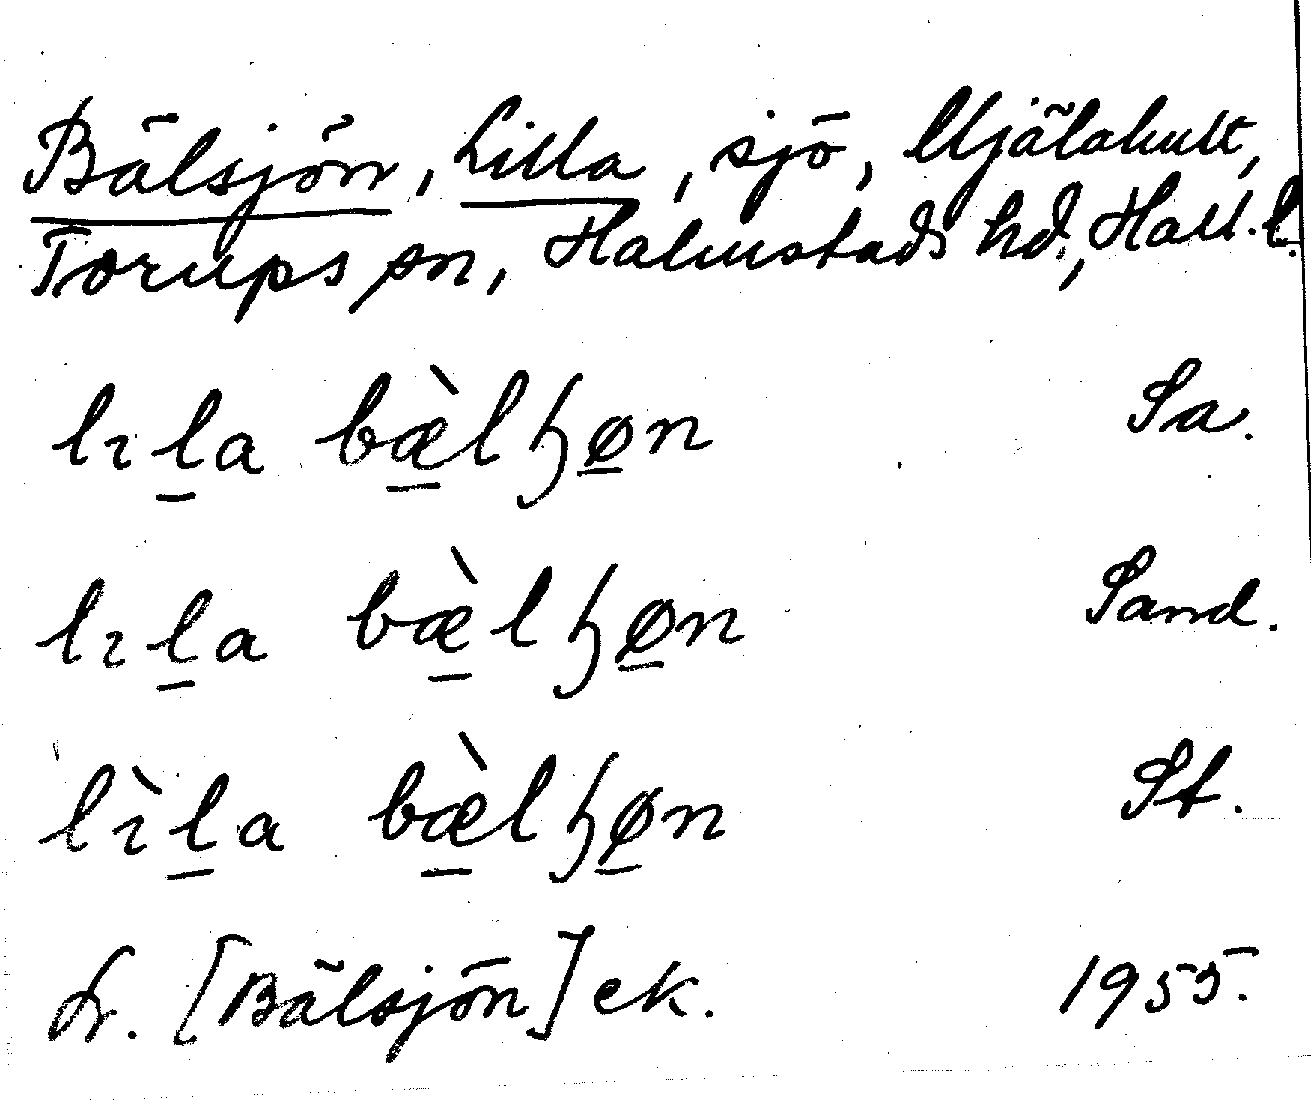 Bälsjön, Lilla, sjö, Mjälahult,
Torups sn, Halmstads hd, Hall. l.
lıla bæ̀lɧøn Sa.
lıla bæ̀lɧøn Sand.
lı̀la bæ̀lɧøn St.
Lr. [Bälsjön] ek. 1955.